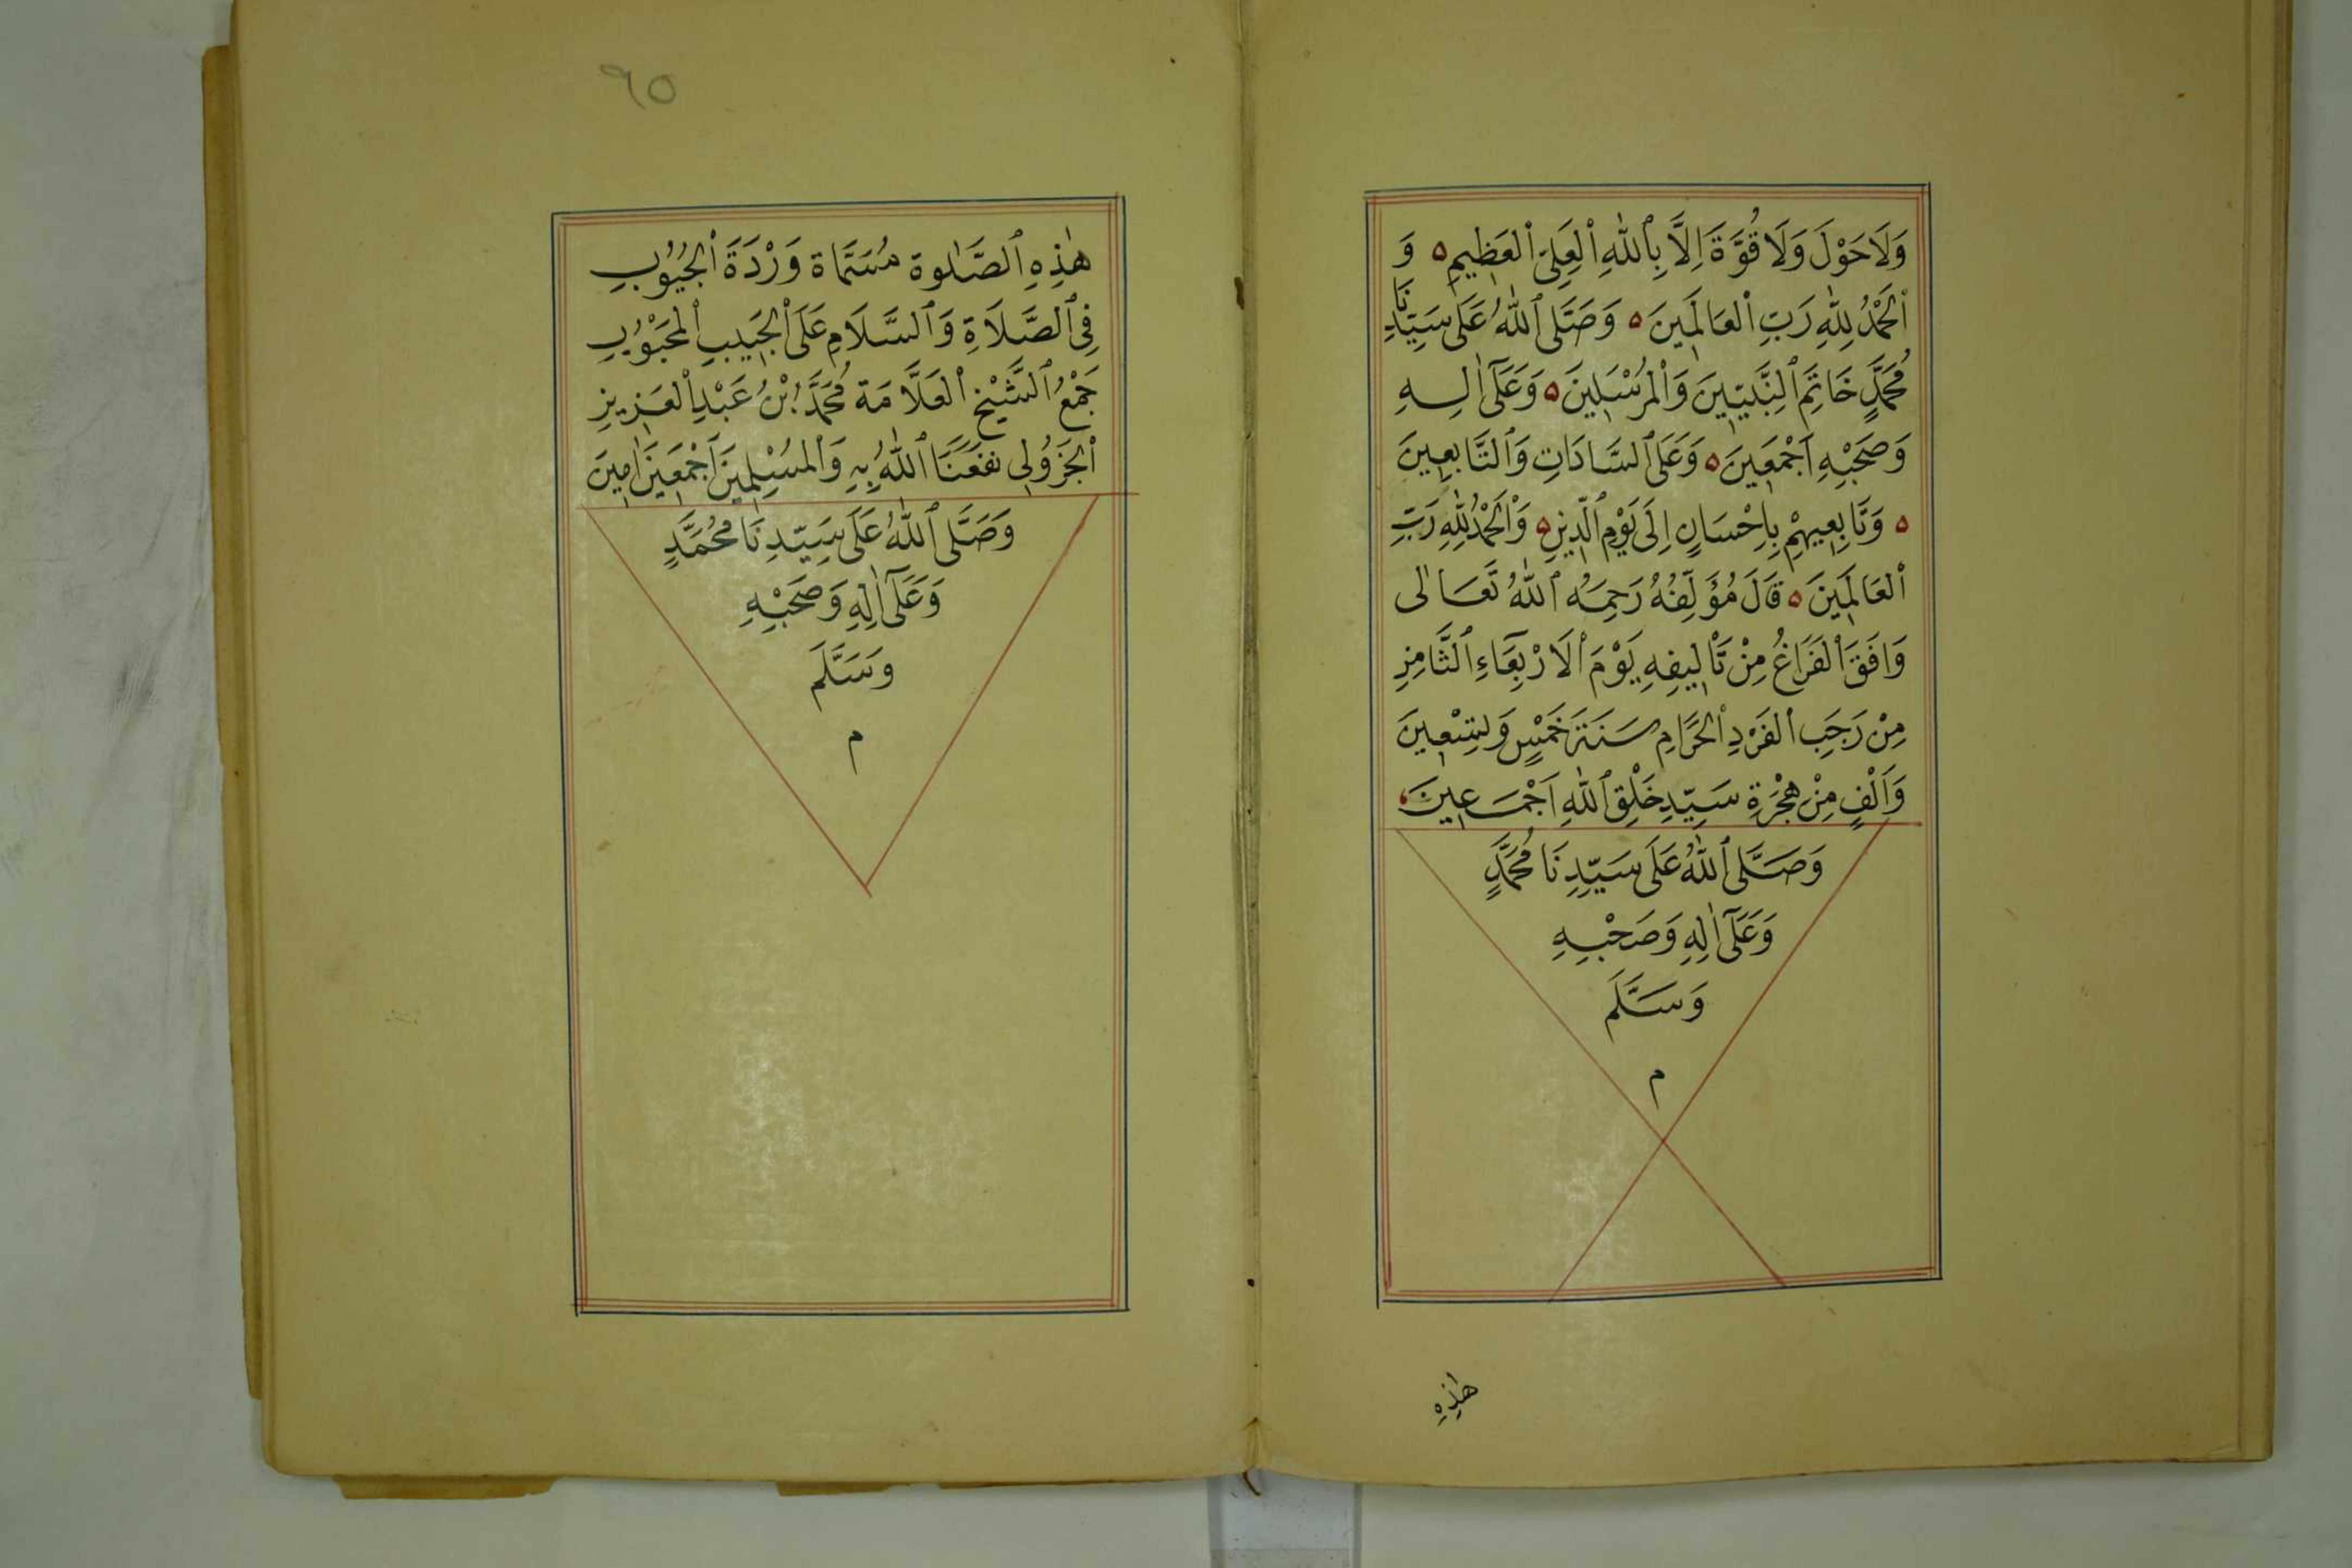 وَلَا حَوْلَ وَلَا قُوَّةَ اِلَّا بِٱللّٰهِ ٱلْعَلِىِّ ٱلْعَظِيمِ ه وَ
ٱلْحَمْدُ لِلّٰهِ رَبِّ ٱلْعَالَمِينَ ه وَصَلَّى ٱللّٰهُ عَلَى سَيِّدِنَا
مُحَمَّدٍ خَاتِمِ ٱلنَّبِيّيِنَ وَٱلْمُرْسَلِينَ ه وَعَلَىٓ اٰلِهِ
وَصَحْبِهِ اَجْمَعِينَ ه وَعَلَى ٱلسَّادَاتِ وَٱلتَّابِعِينَ
ه وَتَابِعِيهِمْ بِاِحْسَانٍ اِلَى يَوْمِ ٱلدِّينِ ه وَٱلْحَمْدُ لِلّٰهِ رَبِّ
ٱلْعَالَمِينَ ه قَالَ مُؤَلِّفُهُ رَحِمَهُ ٱللّٰهُ تَعَالٰى
وَافَقَ ٱلْفَرَاغُ مِنْ تَأْلِيفِهِ يَوْمَ ٱلْاَرْبِعَاءِ ٱلثَّامِنِ
مِنْ رَجَبِ ٱلْفَرْدِ ٱلْحَرَامِ سَنَةَ خَمْسٍ وَتِسْعِينَ
وَاَلْفٍ مِنْ هِجْرَةِ سَيِّدِ خَلْقِ ٱللّٰهِ اَجْمَعِينَ
وَصَلَّى ٱللّٰهُ عَلَى سَيِّدِنَا مُحَمَّدٍ
وَعَلَىٓ اٰلِهِ وَصَحْبِهِ
وَسَلَّمَ
م
هٰذِهِ
٩٥
هٰذِهِ ٱلصَّلٰوة مُسَمَّاة وَرْدَةَ ٱلْجُيُوبِ
فِى ٱلصَّلَاةِ وَٱلسَّلَامِ عَلَى ٱلْحَبِيبِ ٱلْمَحْبُوبِ
جَمْعُ ٱلشَّيْخِ ٱلْعَلَّامَة مُحَمَّدُ بْنُ عَبْدِ ٱلْعَزِيزِ
ٱلْجَزُولِى نَفَعَنَا ٱللّٰهُ بِهِ وَٱلْمُسْلِمِينَ اَجْمَعِينَ اٰمِينَ
وَصَلَّى ٱللّٰهُ عَلَى سَيِّدِنَا مُحَمَّدٍ
وَعَلَىٓ اٰلِهِ وَصَحْبِهِ
وَسَلَّمَ
م